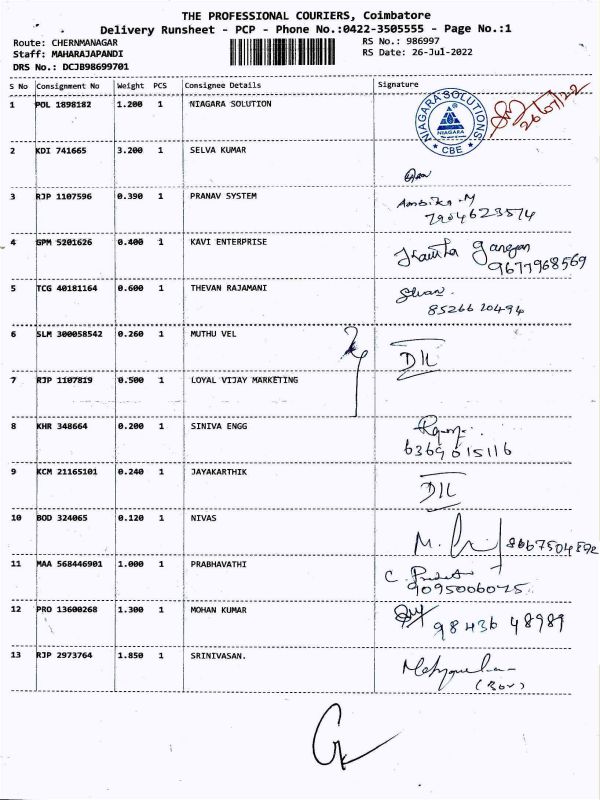 THE PROFESSIONAL COURIERS, Coimbatore
Delivery Runsheet - PCP - Phone No.:0422-3505555 - Page No.:1
Route: CHERNMANAGAR
RS No.: 986997
Staff: MAHARAJAPANDI
RS Date: 26-Jul-2022
DRS No.: DCJB98699701
S No Consignment No Weight PCS Consignee Details Signature
1 POL 1898182 1.200 1 NIAGARA SOLUTION
NIAGARA SOLUTIONS
NIAGARA
* CBE *
26/07/22
2 KDI 741665 3.200 1 SELVA KUMAR
3 RJP 1107596 0.390 1 PRANAV SYSTEM
Ambika.M
7904623574
4 GPM 5201626 0.400 1 KAVI ENTERPRISE
9677968569
5 TCG 40181164 0.600 1 THEVAN RAJAMANI
8526620494
6 SLM 300058542 0.260 1 MUTHU VEL
D/L
7 RJP 1107819 0.500 1 LOYAL VIJAY MARKETING
8 KHR 348664 0.200 1 SINIVA ENGG
6369615116
9 KCM 21165101 0.240 1 JAYAKARTHIK
D/L
10 BOD 324065 0.120 1 NIVAS
M.
11 MAA 568446901 1.000 1 PRABHAVATHI
9095006025
12 PRO 13600268 1.300 1 MOHAN KUMAR
98436 48989
13 RJP 2973764 1.850 1 SRINIVASAN.